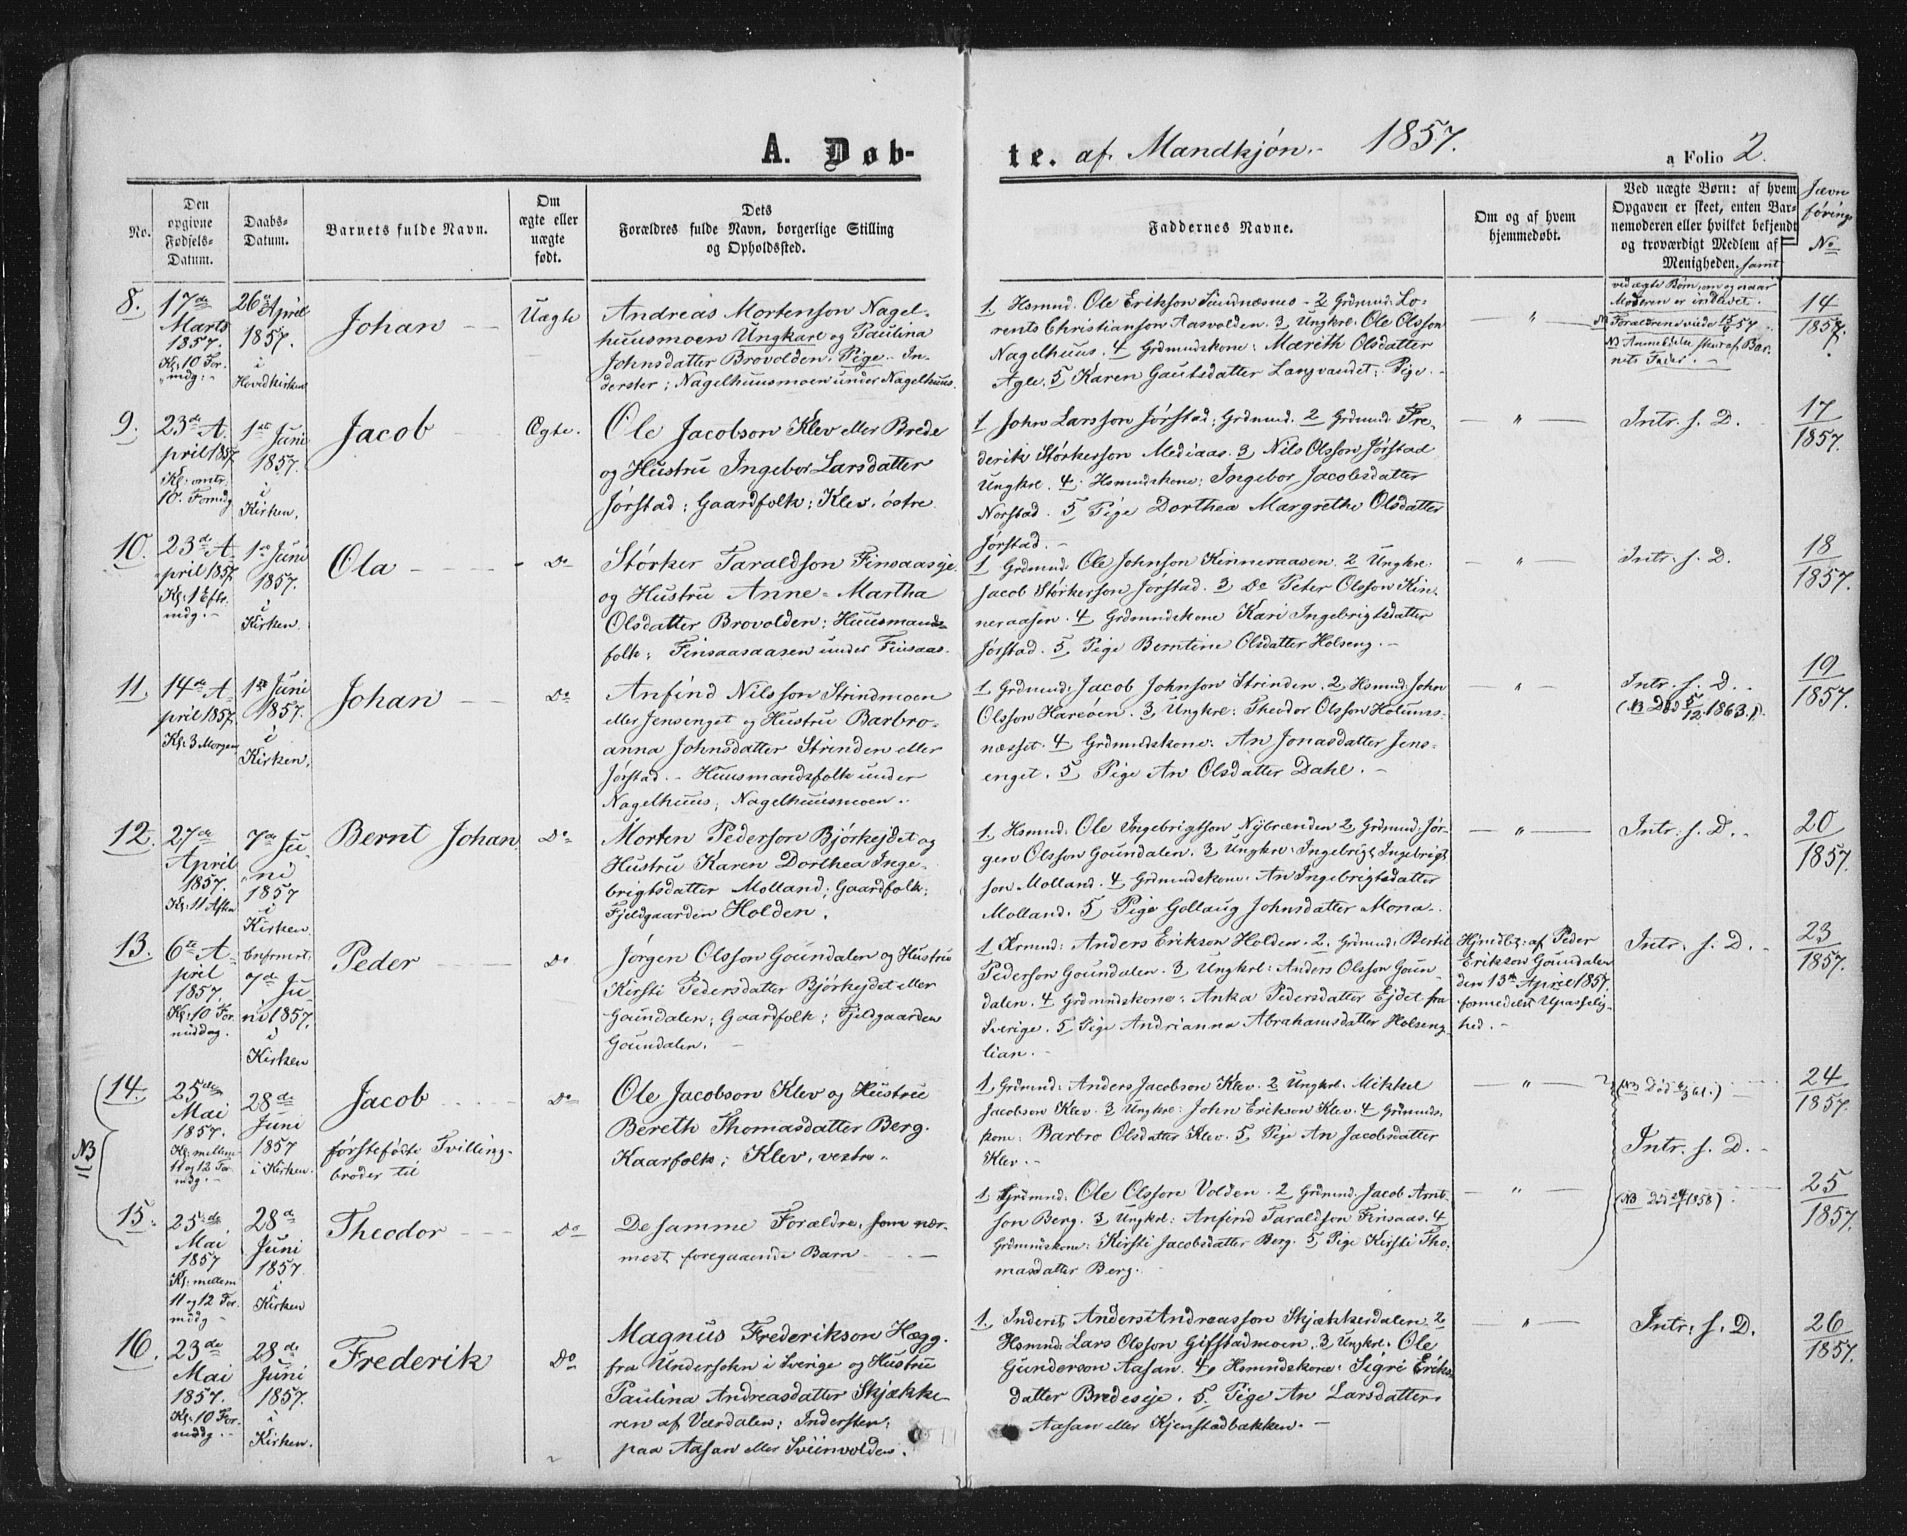 A. Døb-
te. af Mandkjøn.- 1857.
a Folio 2.
No.
Den
opgivne
Fødsels-
Datum.
Daabs-
Datum.
Barnets fulde Navn.
Om
ægte eller
uægte
født.
Dets
Forældres fulde Navn, borgerlige Stilling
og Opholdssted.
Faddernes Navne.
Om og af hvem
hjemmedøbt.
Ved uægte Børn: af hvem
Opgaven er skeet, enten Bar-
nemoderen eller hvilket bekjendt
og troværdigt Medlem af
Menigheden, samt
vid ægte Børn, om og naar
Moderen er indledet.
Jævn
førings
No
8.
17de
Marts
1857.
Kl: 10 For-
mdg:-
26de April
1857.
i
Hovedkirken
Johan
Uægte
Andreas Mortenson Nagel-
huusmoen Ungkarl og Paulina
Johnsdatter Brovolden, Pige. In-
derster; Nagelhuusmoen under Nagelhuus.
1. Hsmnd. Ole Erikson Sundnæsnes - 2 Grdmnd. Lo-
rents Christianson Aasvolden. 3 Ungkrl. Ole Olsson
Nagelhuus. 4 Grdmndskone: Mærith Olsdatter
Agle. 5 Karen Gautsdatter Langvandet: Pige.-
"
NB Forældrene viede 15/5 57.
NB Anmeldelse skeet af Bar-
nets Fader.
14
1857.
9.
23de A-
pril 1857
Kl: omtr.
10. Formdg
1ste Juni
1857.
i
Kirken.
Jacob
Ægte.
Ole Jacobson Klev eller Brede
og Hustru Ingebor Larsdatter
Jørstad; Gaardfolk: Klev, østre.
1 John Larsson Jørstad; Grdmnd. 2 Grdmnd. Fre-
derik Størkerson Mediaas. 3 Nils Olsson Jørstad
Ungkrl. 4. Hsmndskone; Ingebor Jacobsdatter
Norstad. 5 Pige Dorthea Margrethe Olsdatter
Jørstad.-
"
Intr. f. D.
17
1857.
10.
23de A-
pril 1857.
Kl: 1 Efter-
mdg.-
1ste Juni
1857.
i
Kirken.
Ola
Do
Størker Taraldson Finsaasejе
og Hustru Anne-Martha
Olsdatter Brovolden; Huusmands-
folk; Finsaasaasen under Finsaas.
1. Grdmnd. Ole Johnson Kinneraasen. 2 Ungkrl:
Jacob Størkerson Jørstad. 3 Do Peter Olsson Kin-
neraasen. 4 Grdmndskone Kari Ingebrigtsdatter
Jørstad. 5 Pige Berntine Olsdatter Holseng.-
"
Intr. f. D.
18
1857.
11.
14de A-
pril 1857.
Kl: 3 Morgen
1ste Juni
1857.
i
Kirken.
Johan
Do
Anfind Nilsson Strindmoen
eller Jensenget og Hustru Barbro-
anna Johnsdatter Strinden eller
Jørstad.- Huusmandsfolk under
Nagelhuus; Nagelhuusmoen.
1. Grdmnd. Jacob Johnson Strinden. 2 Hsmnd. John
Olsson Hareøen. 3 Ungkrl: Theodor Olsson Holums-
næsset. 4 Grdmndskone: An Jonasdatter Jens-
enget. 5 Pige An Olsdatter Dahl.-
"
Intr. f. D.
(NB Død 5/12 1863.)
19
1857.
12.
27de
April
1857.
Kl: 11 Aften
7de Ju-
ni
1857
i
Kirken
Bernt Johan
Do
Morten Pederson Bjørkejdet og
Hustru Karen Dorthea Inge-
brigtsdatter Molland; Gaardfolk;
Fjeldgaarden Holden.
1. Hsmnd: Ole Ingebrigtson Nybrænden 2 Grdmnd: Jør-
gen Olsson Goundalen. 3 Ungkrl: Ingebrigt Ingebrigt
son Molland. 4 Grdmndskone: An Ingebrigtsdatter
Molland. 5 Pige Gollaug Johnsdatter Mona.
"
Intr. f. D.
20
1857.
13.
6te A-
pril
1857.
Kl: 10 For-
middag.
7de Ju-
ni 1857.
i
Kirken
Peder
Do
Jørgen Olsson Goundalen og Hustru
Kirsti Pedersdatter Bjørkejdet eller
Goundalen; Gaardfolk; Fjeldgaarden
Goundalen.
1. Krmnd: Anders Erikson Holden. 2. Grdmnd: Bertil
Pederson Goundalen. 3 Ungkrl: Anders Olsson Goun-
dalen. 4 Grdmndskone: Anka Pedersdatter Ejdet fra
Sverige. 5 Pige Andrianna Abrahamsdatter Holseng-
lian.-
Hjmdbt: af Peder
Erikson Goundalen
den 13de April 1857.
formedelst Upasselig-
hed.-
Intr. f. D.
23
1857.
NB
14.
25de
Mai
1857.
Kl: mellem
11 og 12 For-
mdg.-
28de
Juni
1857
i Kirken.
Jacob
førstefødte Tvilling-
broder til
Do
Ole Jacobson Klev og Hustru
Bereth Thomasdatter Berg.
Kaarfolk; Klev, vestre.
1, Grdmnd: Anders Jacobson Klev. 2 Ungkrl: Mikkel
Jacobson Klev. 3 Ungkrl: John Erikson Klev. 4 Grdmnds-
kone: Barbro Olsdatter Klev. 5 Pige An Jacobsdatter
Klev.-
"
Intr. f. D.
24
1857.
15.
25de
Mai
1857
Kl: mellem
11 og 12 For-
middg
28de
Juni
1857.
i
Kirken
Theodor
Do
De samme Forældre, som nær-
mest foregaaende Barn
1 Grdmnd: Ole Olsson Volden. 2 Grdmnd. Jacob Arnt-
son Berg. 3 Ungkrl: Anfind Taraldson Finsaas. 4
Grdmndskone: Kirsti Jacobsdatter Berg. 5 Pige Kirsti Tho-
masdatter Berg.
"
(NB død 24/1 1858)
25
1857.
16.
23de
Mai
1857.
Kl: 10 For-
middg.-
28de
Juni
1857.
i
Kirken.
Frederik
Do
Magnus Frederikson Hægg.
fra Undersohn i Sverige og Hustru
Paulina Andreasdatter Skjække-
ren af Værdalen; Indersten;
paa Aasan eller Sviinvolden.
1. Inderst, Anders Andreasson Skjækkerdalen. 2
Hsmnd: Lars Olsson Gifstadmoen. 3 Ungkrl: Ole
Gunderson Aasan. 4 Hsmndskone: Sigri Eriks-
datter Bredeseje. 5. Pige An Larsdatter
Aasan eller Kjenstadbakken.-
"
Intr. f. D.
26
1857.